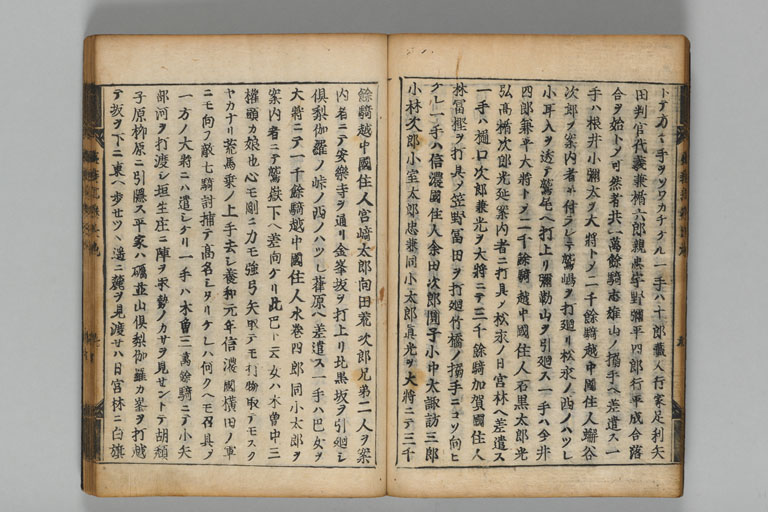 トテ方々手ヲソワカチケル一手ハ十郎藏人行家足利矢
田判官代義兼楯六郎親忠宇野彌平四郎行平成合落
合ヲ始トノ可然者共一萬餘騎志雄山ノ搦手ヘ差遣ス一
手ハ根井小彌太ヲ大將トノ二千餘騎越中國住人蠏谷
次郎ヲ案内者ニ付ラレテ鷲嶋ヲ打廻リ松永ノ西ノハツレ
小耳入ヲ透テ鷲尾ヘ打上リ彌勒山ヲ引廻ス一手ハ今井
四郎兼平大將トノ二千餘騎越中國住人石黒太郎光
弘高楯次郎光延案内者ニ打具ノ松永ノ日宮林ヘ差遣ス
一手ハ樋口次郎兼光ヲ大將ニテ三千餘騎加賀國住人
林冨樫ヲ打具ノ笠野冨田ヲ打廻竹橋ノ搦手ニコソ向ヒ
クレ一手ハ信濃國住人余田次郎圓子小中太諏訪三郎
小林次郎小室太郎忠兼同小太郎眞光ヲ大將ニテ三千
餘騎越中國住人宮﨑太郎向田荒次郎兄弟二人ヲ案
内者ニテ安樂寺ヲ通リ金峯坂ヲ打上リ北黒坂ヲ引廻シ
倶梨伽羅ノ峠ノ西ノハツレ葎原ヘ差遣ス一手ハ巴女ヲ
大將ニテ一千餘騎越中國住人水巻四郎同小太郎ヲ
案内者ニテ鷲嶽下ヘ差向ケリ此巴ト云女ハ木曽中三
權頭カ娘也心モ剛ニ力モ強弓矢取テモ打物取テモスク
ヤカナリ荒馬乗ノ上手去シ養和元年信濃國横田ノ軍
ニモ向フ敵七騎討捕テ高名シタリケレハ何クヘモ召具ノ
一方ノ大將ニハ遣シケリ一手ハ木曽三萬餘騎ニテ小矢
部河ヲ打渡シ垣生庄ニ陣ヲ取勢ノカサヲ見セントテ胡頽
子原柳原ニ引隱ス平家ハ礪並山倶梨伽羅カ峯ヲ打越
テ坂ヲ下ニ東ヘ歩セツヽ遥ニ麓ヲ見渡セハ日宮林ニ白旗